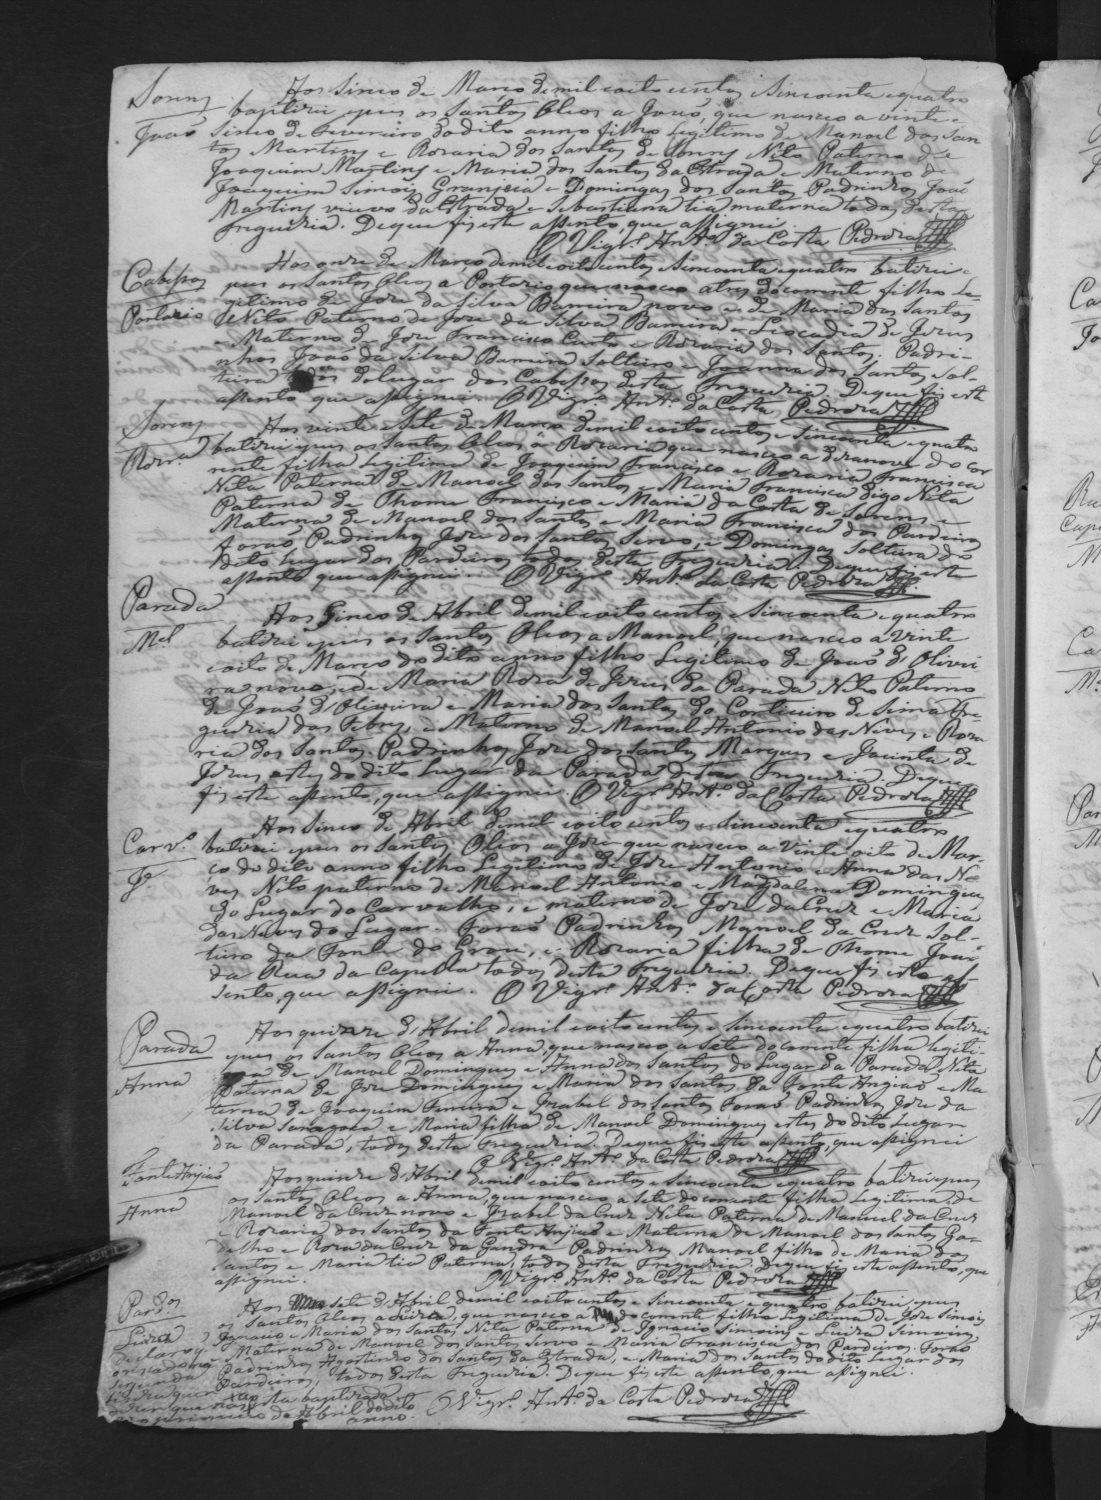 Sorens
João
Aos sinco de Março de mil oito centos e sincoenta e quatro
baptizei e pus os Santos Oleos a João, que nasceo a vinte e
sinco de Fevereiro do dito anno filho legitimo de Manoel dos San
tos Martins e Rozaria dos Santos de Sorens Neto Paterno de
Joaquim Martins e Maria dos Santos da Estrada e Materno de
Joaquim Simois Granjeia e Domingas dos Santos Padrinhos João
Martins viuvo da Estrada e Sebastiana tia materna todos desta
Freguezia. De que fis este assento, que assignei.
O Vigr.º Ant.º da Costa Pedroza
Cabessos
Aos onze de Março de mil oito centos e sincoenta e quatro batizei e
pus os Santos Oleos a que nasceo a tres do corrente filho Le-
gitimo de Joze da Silva Bameira novo e de Maria dos Santos
Neto Paterno de Joze da Silva Bameira e Leocadia de Jezus
e Materno de Joze Francisco Couto e Rozaria dos Santos; Padri-
nhos João da Silva Bameira Solteiro e Joanna dos Santos Sol-
teira do Lugar dos Cabessos desta Freguezia De que fis este
assento que assignei O Vigr.º Ant.º da Costa Pedroza
Sorens
Roz.ª
Aos vinte e Sete de Março de mil oito centos e sincoenta e quatro
batizei e pus os Santos Oleos a Rozaria que nasceo a dezanove do cor
rente filha Legitima de Joaquim Francisco e Rozaria Francisca
Neta Paterna de Manoel dos Santos e Maria Francisca digo Neta
Paterna de Thome Francisco e Maria da Costa de Sorens e
Materna de Manoel dos Santos e Maria Francisca dos Pardieiros
forão Padrinhos Joze dos Santos Servo, e Domingas Solteira do
dito lugar dos Pardieiros todos desta Freguezia. De que fis este
assento que assignei. O Vigr.º Ant.º da Costa Pedroza
Parada
M.el
Aos Sinco de Abril de mil oito centos e sincoenta e quatro
batizei e pus os Santos Oleos a Manoel, que nasceo a vinte
e oito de Março do dito anno filho Legitimo de João d'Olivei
ra novo, e de Maria Roza de Jezus da Parada Neto Paterno
de João d'Oliveira e Maria dos Santos do Contieiro de Sima Fre-
guezia dos Febres, e Materno de Manoel Antonio das Neves e Roza
ria dos Santos Padrinhos Joze dos Santos Marques e Jacinta de
Jezus estes do dito Lugar da Parada desta Freguezia. De que
fis este assento, que assignei. O Vigr.º Ant.º da Costa Pedroza
Carv.º
J.e
Aos Sinco de Abril de mil oito centos e sincoenta e quatro
batizei e pus os Santos Oleos a Joze que nasceo a vinte oito de Mar-
ço do dito anno filho Legitimo de Joze Antonio e Anna das Ne
ves Neto paterno de Manoel Antonio e Magdalena Domingues
do Lugar do Carvalho, e materno de Joze da Cruz e Maria
das Neves do Lugar Forão Padrinhos Manoel da Cruz Sol-
teiro da Fonte do Grou, e Rozaria filha de Thome João
da Rua da Capella todos desta Freguezia. De que fis este as
sento, que assignei. O Vigr.º Ant.º da Costa Pedroza
Parada
Anna
Aos quinze d'Abril de mil oito centos e sincoenta e quatro batizei
e pus os Santos Oleos a Anna, que nasceo a sete do corrente filha legiti-
ma de Manoel Domingues e Anna dos Santos do Lugar da Parada Neta
Paterna de Joze Domingues e Maria dos Santos da Fonte Angião e Ma
terna de Joaquim Ferreira e Izabel dos Santos Forão Padrinhos Joze da
Silva e Maria filha de Manoel Domingues estes do dito Lugar
da Parada, todos desta Freguezia. De que fis este assento, que assignei
O Vigr.º Ant.º da Costa Pedroza
Anna
Aos quinze d'Abril de mil oito centos e sincoenta e quatro batizei e pus
os Santos Oleos a Anna, que nasceo a sete do corrente filha Legitima de
Manoel da Cruz novo e Izabel da Cruz Neta Paterna de Manoel da Cruz
e Rozaria dos Santos da Fonte Anjião e Materna de Manoel dos Santos Ga-
delho e Roza da Cruz da Gandra Padrinhos Manoel filho de Maria dos
Santos e Maria tia Paterna, todos desta Freguezia. De que fis este assento, que
assignei. O Vigr.º Ant.º da Costa Pedroza
Pard.os
Luiza
Aos sete d'Abril de mil oito centos e sincoenta e quatro batizei e pus
os Santos Oleos a Luiza, que nasceo a do corrente filha Legitima de Joze Simois
e Maria dos Santos Neta Paterna de Ignacio Simois e Luiza Simois,
e Materna de Manoel dos Santos Servo e Maria Francisca dos Pardieiros. Forão
Padrinhos Agostinho dos Santos da Estrada, e Maria dos Santos do dito Lugar dos
Pardieiros, todos desta Freguezia. De que fis este assento, que assignei.
O Vigr.º Ant.º da Costa Pedroza
de Abril do dito
anno.